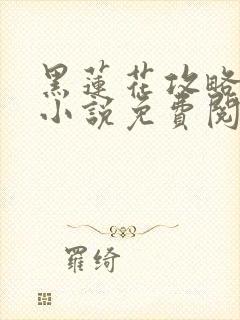 黑蓮花攻略
小說免費閱
羅綺